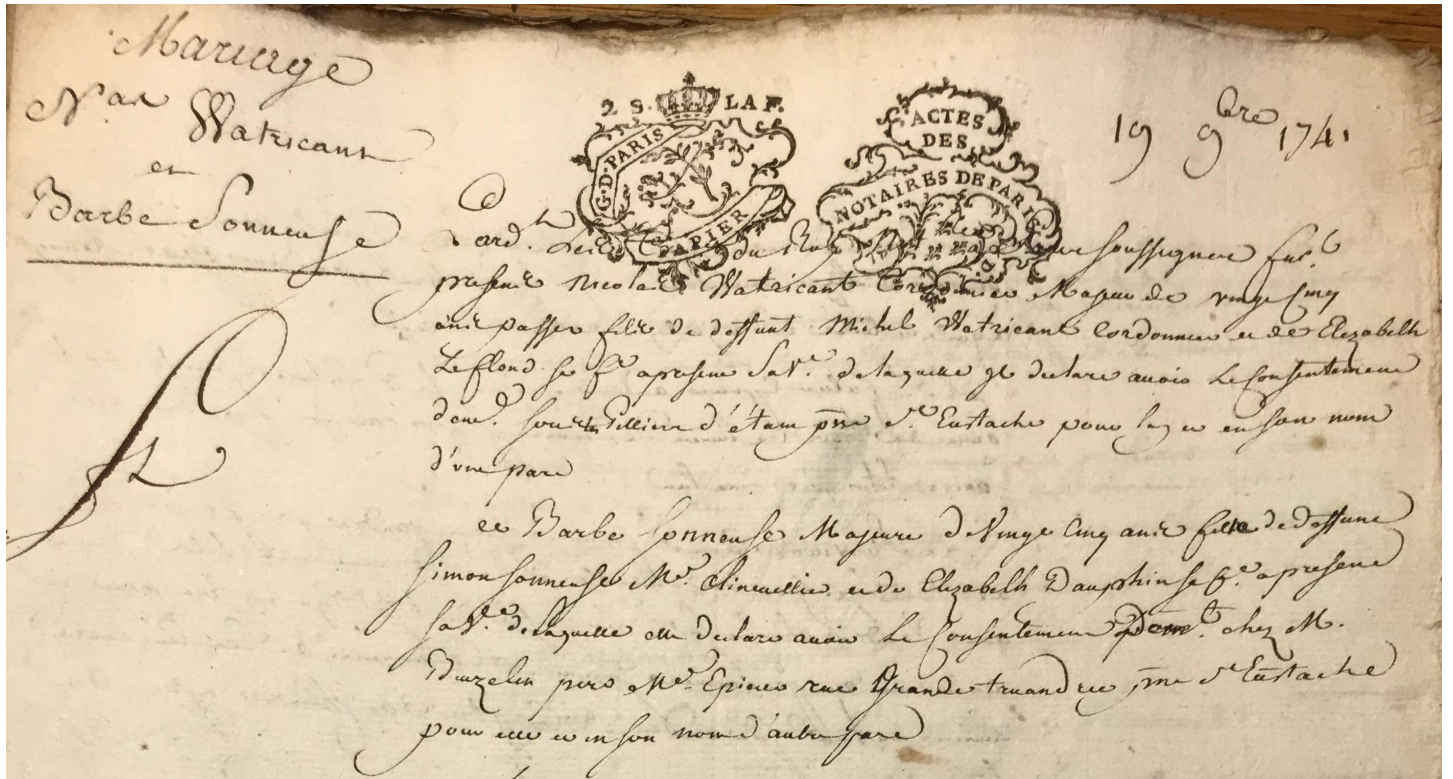 Mariage
Nas Watricant
et
Barbe Sonneuse
2 S. LA F.
G. D. PARIS
PAPIER
ACTES
DES
NOTAIRES DE PARIS
19 9bre 1741
Pard. Les du Roy soussignez fut
present Nicolas Watricant Cordonnier Majeur de vingt Cinq
ans passez fils de deffunt Michel Watricant Cordonnier et de Elizabeth
Leflond sa fe. a present sa Ve. de laquelle il declare avoir Le Consentement
demt. d'étain psse St. Eustache pour luy et en son nom
d'une part
et Barbe Sonneuse Majeure de Vingt Cinq ans fille de deffunt
Simon Sonneuse Me. et de Elizabeth Dauphin sa fe. a present
sa Ve. de laquelle elle declare avoir Le Consentement demt. chez M.
pere Md. Epicier rue Grande truandrie psse St Eustache
pour elle et en son nom d'autre part